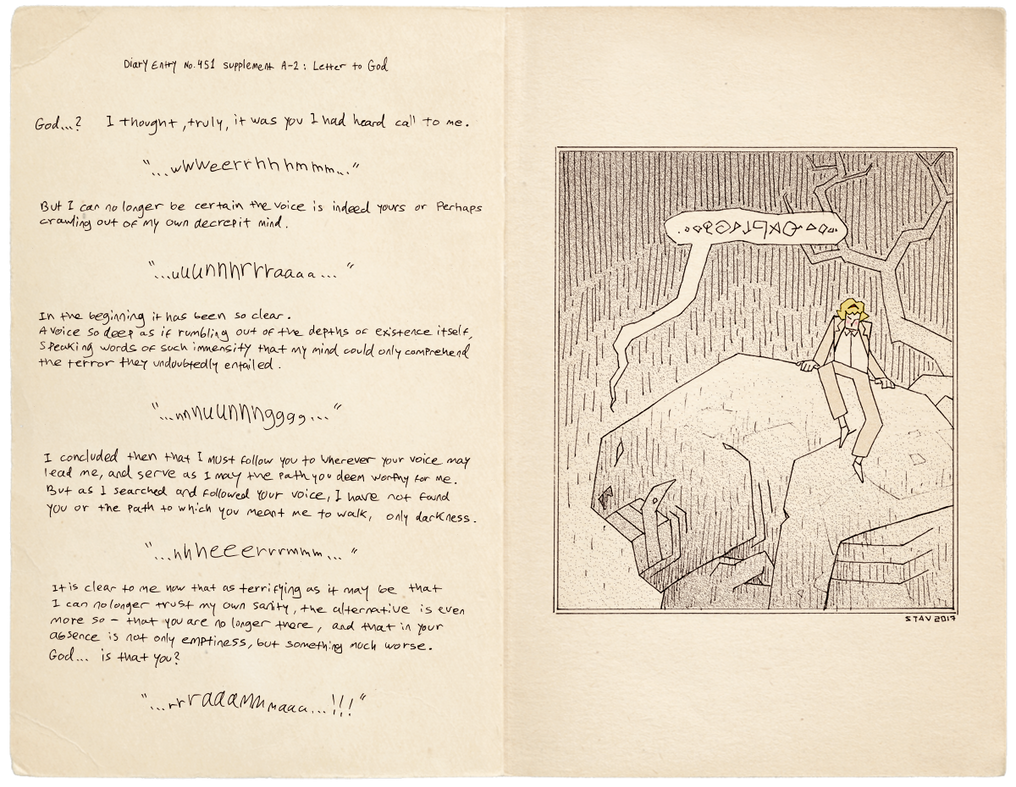 Diary Entry No.451 supplement A-2: Letter to God
God...? I thought, truly, it was you I had heard call to me.
"...wwweerrhhhmmm..."
But I can no longer be certain the voice is indeed yours or perhaps
crawling out of my own decrepit mind.
"...uuunnnhrrraaaa..."
In the beginning it has been so clear.
A voice so deep as if rumbling out of the depths of existence itself,
Speaking words of such immensity that my mind could only comprehend
the terror they undoubtedly entailed.
I concluded then that I must follow you to wherever your voice may
lead me, and serve as I may the path you deem worthy for me.
But as I searched and followed your voice, I have not found
you or the path to which you meant me to walk, only darkness.
"...hhheeeerrrmmm..."
It is clear to me now that as terrifying as it may be that
I can no longer trust my own sanity, the alternative is even
more so - that you are no longer there, and that in your
absence is not only emptiness, but something much worse.
God... is that you?
STAV 2017